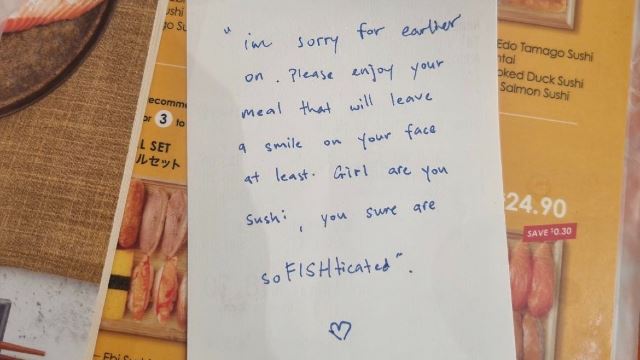 "im sorry for earlier
on. Please enjoy your
meal that will leave
a smile on your face
at least. Girl are you
sushi, you sure are
soFISHticated".
♡
Edo Tamago Sushi
Duck Sushi
Salmon Sushi
24.90
SAVE $0.30
or 3 to
SET
ルセット